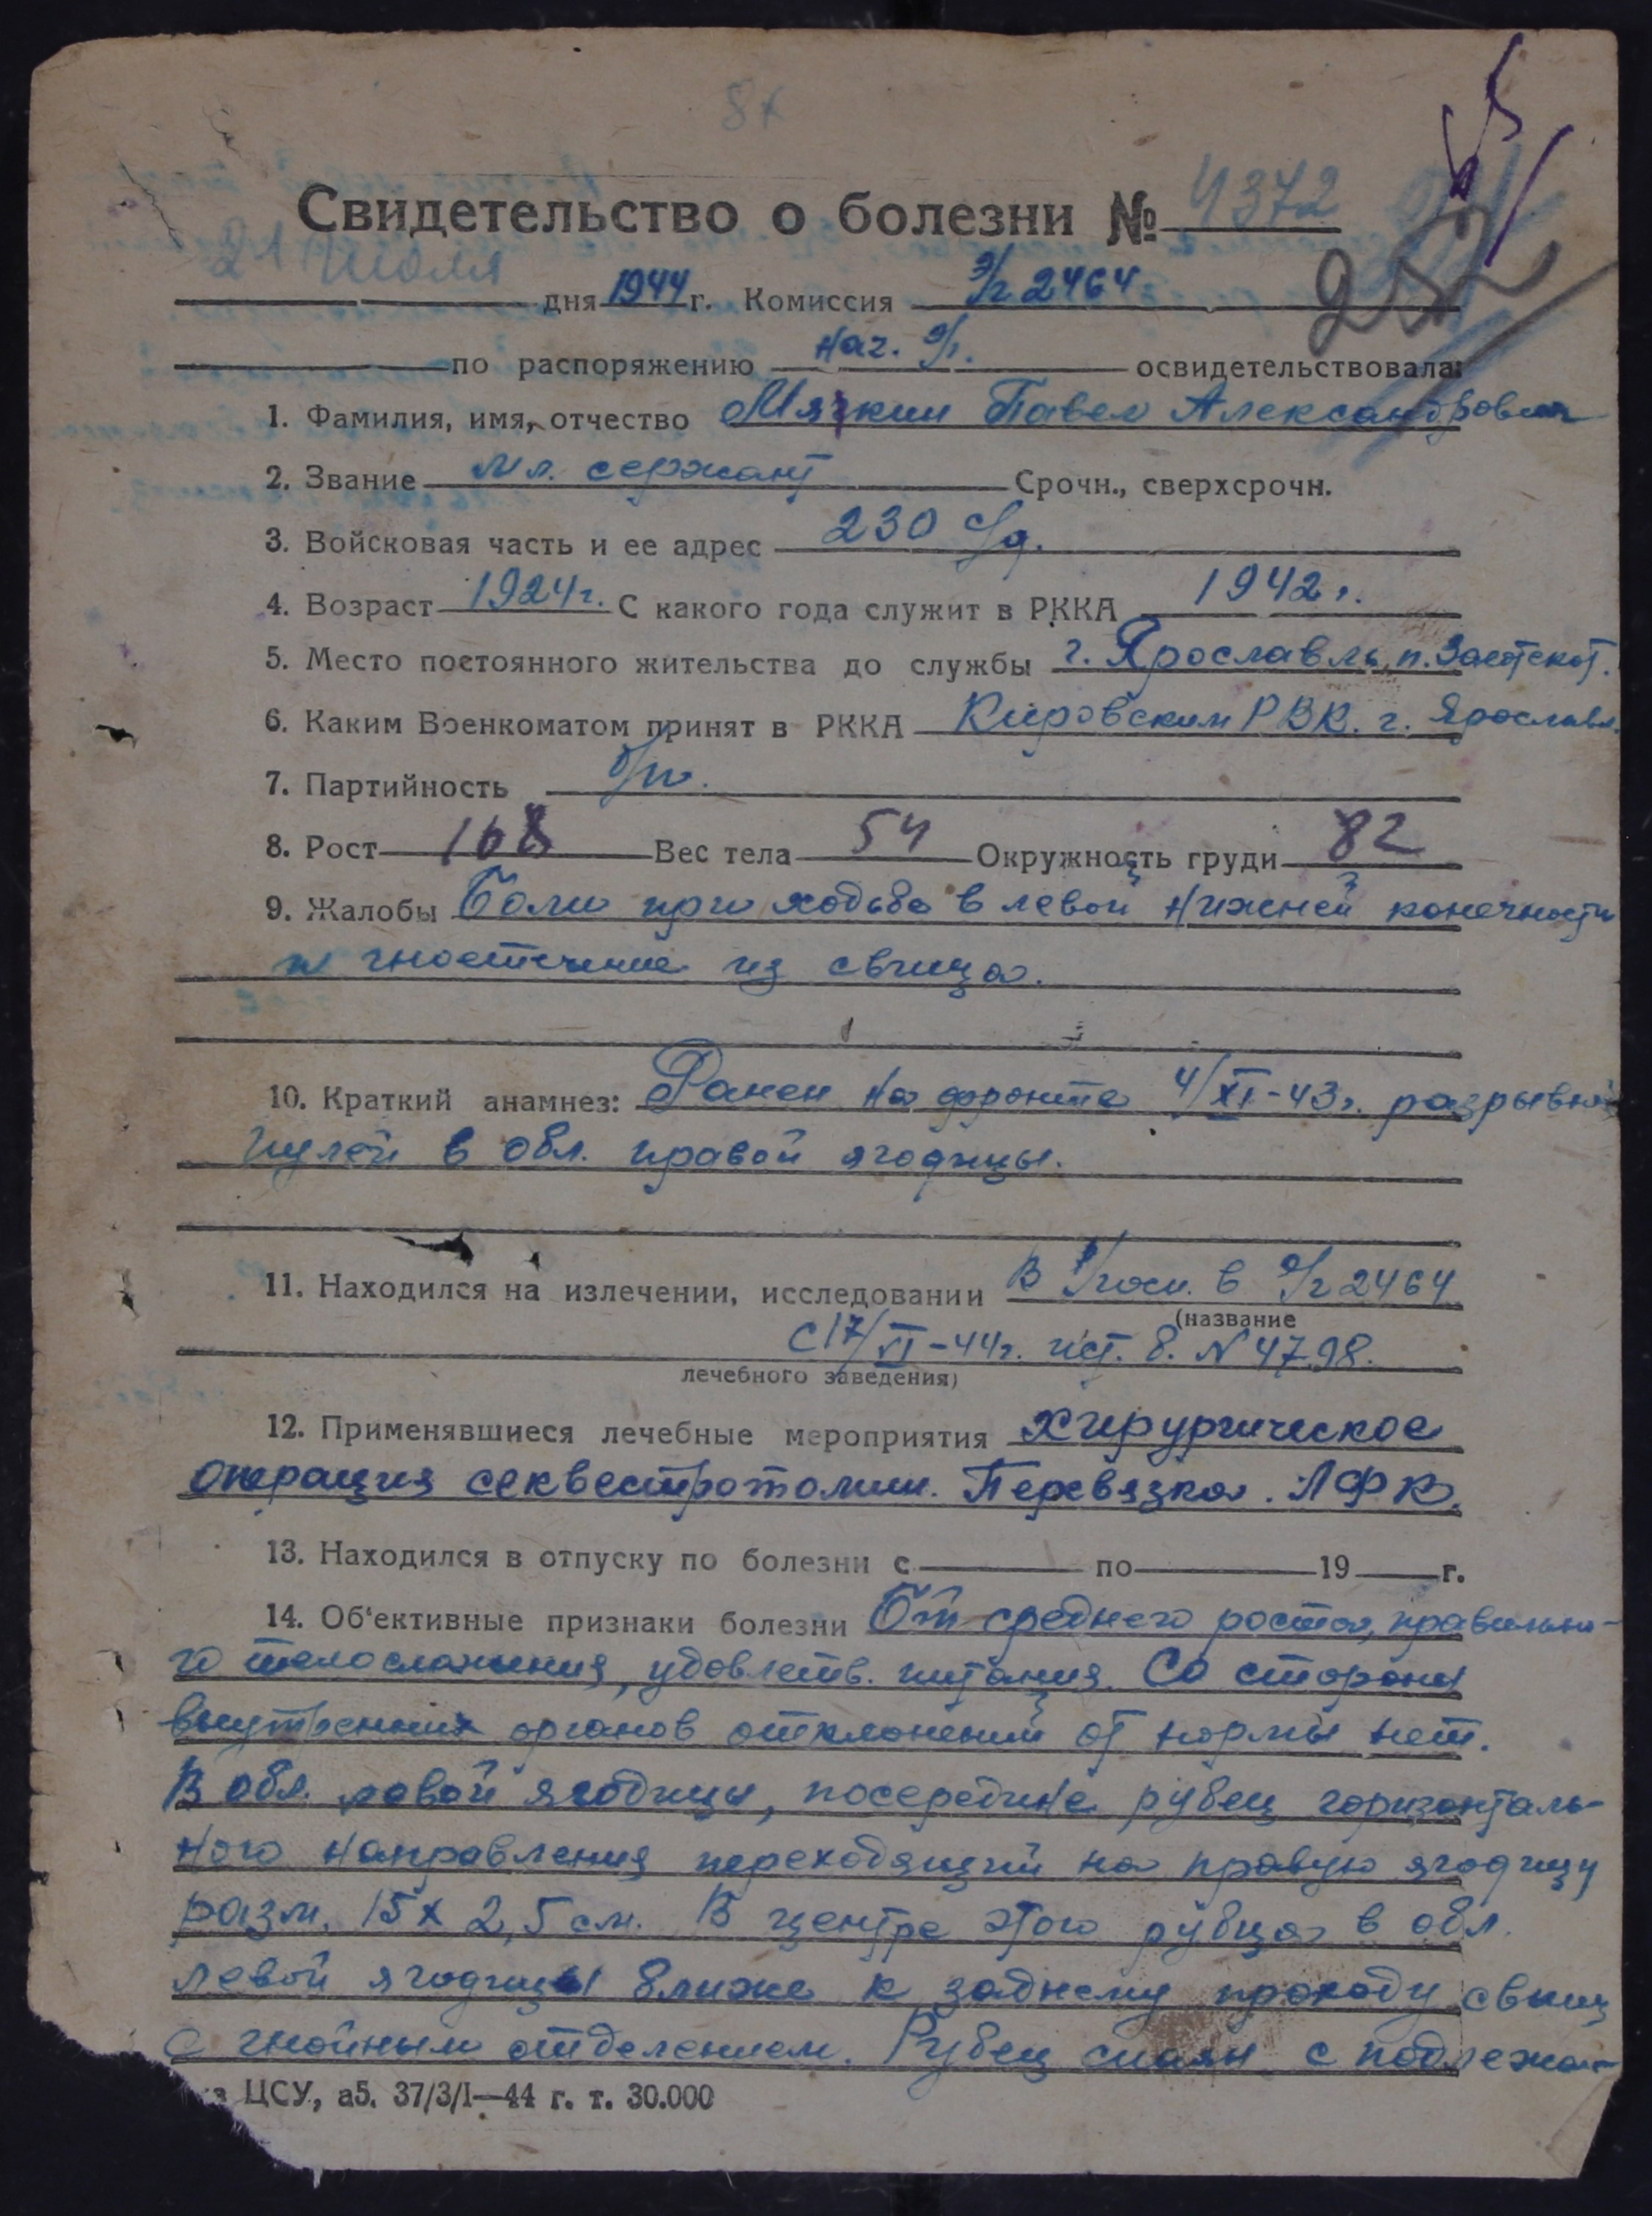 8х
Свидетельство о болезни № 4372
252
21 июля дня 1944 г. Комиссия э/г 2464
по распоряжению нач. э/г. освидетельствовала:
1. Фамилия, имя, отчество Мягкин Павел Александрович
2. Звание мл. сержант Срочн., сверхсрочн.
3. Войсковая часть и ее адрес 230 с/д.
4. Возраст 1924г. С какого года служит в РККА 1942 г.
5. Место постоянного жительства до службы г. Ярославль, п.
6. Каким Военкоматом принят в РККА Кировским РВК. г. Ярославл.
7. Партийность б/п.
8. Рост 168 Вес тела 54 Окружность груди 82
9. Жалобы Боли при ходьбе в левой нижней конечности
и гноетечение из свища.
10. Краткий анамнез: Ранен на фронте 4/XI-43г. разрывной
пулей в обл. правой ягодицы.
11. Находился на излечении, исследовании В госп. в э/г 2464
(название
с 17/VI-44г. ист. б. N 4798.
лечебного заведения)
12. Применявшиеся лечебные мероприятия Хирургическое
операция секвестротомии. Перевязка. ЛФК.
13. Находился в отпуску по болезни с по 19 г.
14. Об'ективные признаки болезни среднего роста, правильно-
го телосложения, удовлетв. питания. Со стороны
внутренних органов отклонений от нормы нет.
В обл. левой ягодицы, посередине рубец горизонталь-
ного направления переходящий на правую ягодицу
разм. 15х2,5 см. В центре этого рубца в обл.
левой ягодицы ближе к заднему проходу свищ
с гнойным отделением. Рубец спаян с подлежа-
ЦСУ, а5. 37/3/I—44 г. т. 30.000